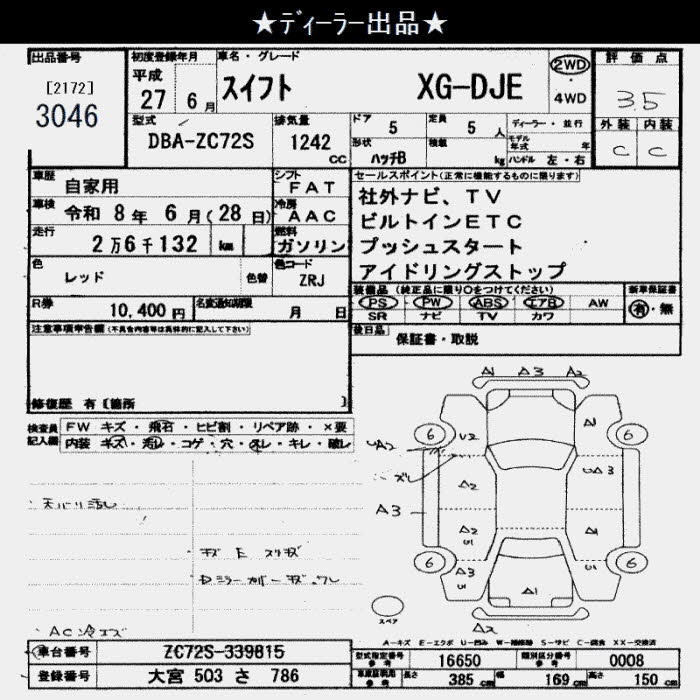 ★ディーラー出品★
出品番号 初度登録年月 車名・グレード 評価点
[2172] 平成 スイフト XG-DJE 2WD 3.5
3046 27 6月 4WD
型式 排気量 ドア 5 定員 5人 ディーラー・並行 外装 内装
DBA-ZC72S 1242 CC 形状 ハッチB 積載 kg モデル年式 年 ハンドル 左・右 C C
車歴 自家用 シフト FAT セールスポイント(正常に機能するものに限ります)
車検 令和 8年 6月(28日) 冷房 AAC 社外ナビ、TV
走行 2万6千132 km 燃料 ガソリン ビルトインETC
プッシュスタート
色 レッド 色替 色コード ZRJ アイドリングストップ
R券 10,400円 名変通知期限 月 日 装備品(純正品に限り○をつけてください) 新車保証書
PS PW ABS エアB AW 有・無
SR ナビ TV カワ
注意事項申告欄(不具合内容等は具体的に記入して下さい) 後日品 保証書・取説
修復歴 有〔箇所 〕
検査員記入欄 FW キズ・飛石・ヒビ割・リペア跡・×要
内装 キズ・汚レ・コゲ・穴・スレ・キレ・破レ
A1 A3 A2
6 U2 A1 6
UA2 ズレ
A2 UA3
A3
A2 U1 A1
6 A3 U1 A1 6
スペア
A2
天バリ汚レ
キズ E スリキズ
Dミラーカバーキズ、ワレ
AC冷エズ
A-キズ E-エクボ U-凹み W-補修跡 S-サビ C-腐食 XX-交換済
車台番号 ZC72S-339815 型式指定番号 参考 16650 類別区分番号 参考 0008
登録番号 大宮 503 さ 786 車庫証明用 参考 長さ 385 cm 幅 169 cm 高さ 150 cm